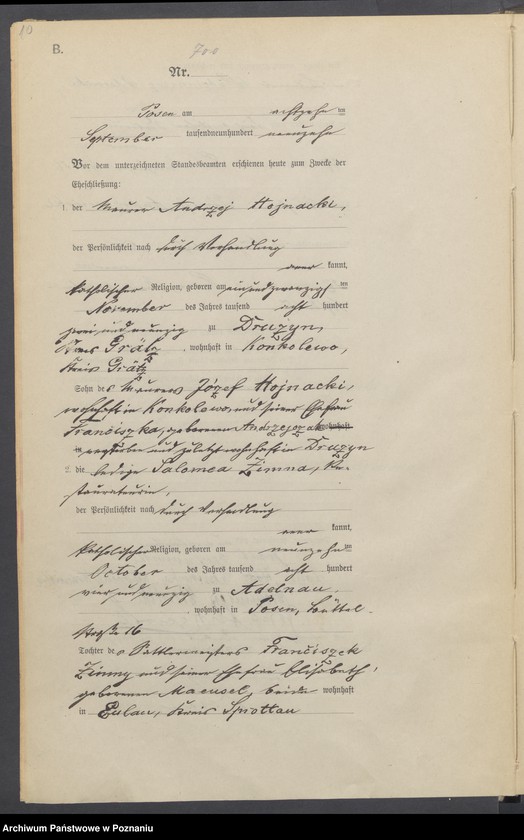 10
B.
700
Nr.
Posen am achtzehn ten
September tausendneunhundert neunzehn
Vor dem unterzeichneten Standesbeamten erschienen heute zum Zwecke der
Eheschließung:
1. der Maurer Andrzej Hojnacki,
der Persönlichkeit nach durch Verhandlung
kannt,
katholischer Religion, geboren am einundzwanzigsten
November des Jahres tausend acht hundert
zwei und neunzig zu Druzyn,
Kreis Grätz, wohnhaft in Konkolewo,
Kreis Grätz
Sohn des Maurers Józef Hojnacki,
wohnhaft in Konkolewo und seiner Ehefrau
Franciszka, geborenen wohnhaft
in verstorben und zuletzt wohnhaft in Druzyn
2. die ledige Salomea Zimna, Re-
staurateurin,
der Persönlichkeit nach durch Verhandlung
kannt,
katholischer Religion, geboren am neunzehn ten
October des Jahres tausend acht hundert
vier und neunzig zu Adelnau
, wohnhaft in Posen, Büttel-
straße 16
Tochter des Sattlermeisters Franciszek
Zimny und seiner Ehefrau Elisabeth,
geborenen beide wohnhaft
in Eulau, Kreis Sprottau
Archiwum Państwowe w Poznaniu